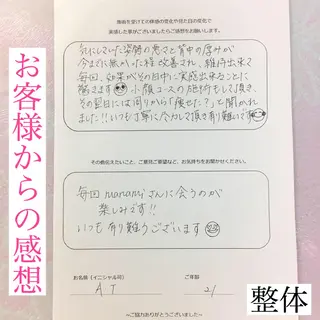 お客様からの感想
施術を受けての体感の変化や見た目の変化で
実感した事がございましたらご感想をお願いします。
気にしていた姿勢の悪さと背中の厚みが
今までに無かった程改善され、維持出来て
毎回、効果がその日中に実感出来ることに
驚きます
小顔コースの施術もして頂き、
その翌日には周りから「痩せた?」と聞かれ
ました!!いつも丁寧に
頂き有り難いです
その他伝えたいこと、ご意見ご要望など、お気持ちをお聞かせください。
毎回manamiさんに会うのが
楽しみです!!
いつも有り難うございます
お名前(イニシャル可)
ご年齢
A T
21
~ご協力ありがとうございました~
整体